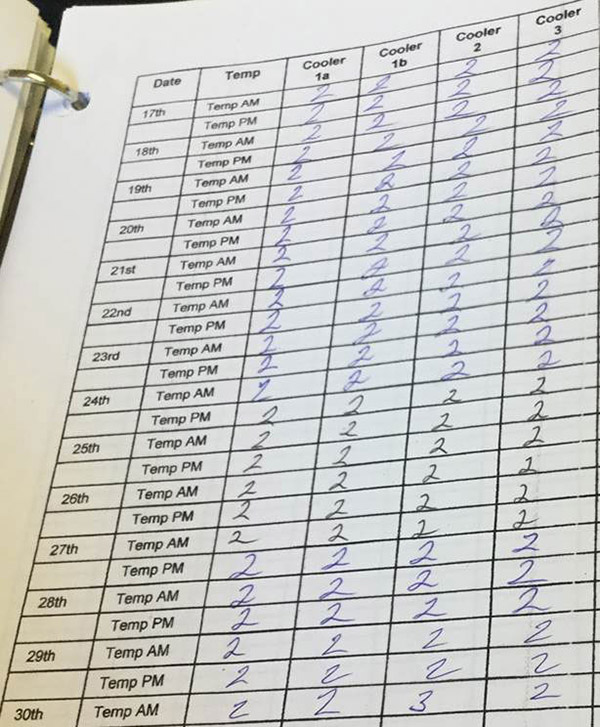 Date Temp Cooler 1a Cooler 1b Cooler 2 Cooler 3
17th Temp AM 2 2 2 2
Temp PM 2 2 2 2
18th Temp AM 2 2 2 2
Temp PM 2 2 2 2
19th Temp AM 2 2 2 2
Temp PM 2 2 2 2
20th Temp AM 2 2 2 2
Temp PM 2 2 2 2
21st Temp AM 2 2 2 2
Temp PM 2 2 2 2
22nd Temp AM 2 2 2 2
Temp PM 2 2 2 2
23rd Temp AM 2 2 2 2
Temp PM 2 2 2 2
24th Temp AM 2 2 2 2
Temp PM 2 2 2 2
25th Temp AM 2 2 2 2
Temp PM 2 2 2 2
26th Temp AM 2 2 2 2
Temp PM 2 2 2 2
27th Temp AM 2 2 2 2
Temp PM 2 2 2 2
28th Temp AM 2 2 2 2
Temp PM 2 2 2 2
29th Temp AM 2 2 2 2
Temp PM 2 2 2 2
30th Temp AM 2 2 3 2